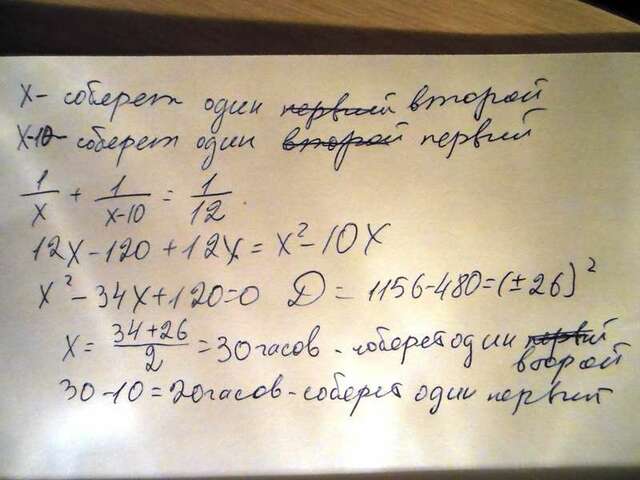 x - соберет один первый второй
x-10 - соберет один второй первый
1/x + 1/(x-10) = 1/12
12x-120+12x = x²-10x
x²-34x+120=0 D = 1156-480=(±26)²
x = (34+26)/2 = 30 часов - соберет один первый второй
30-10=20 часов - соберет один первый